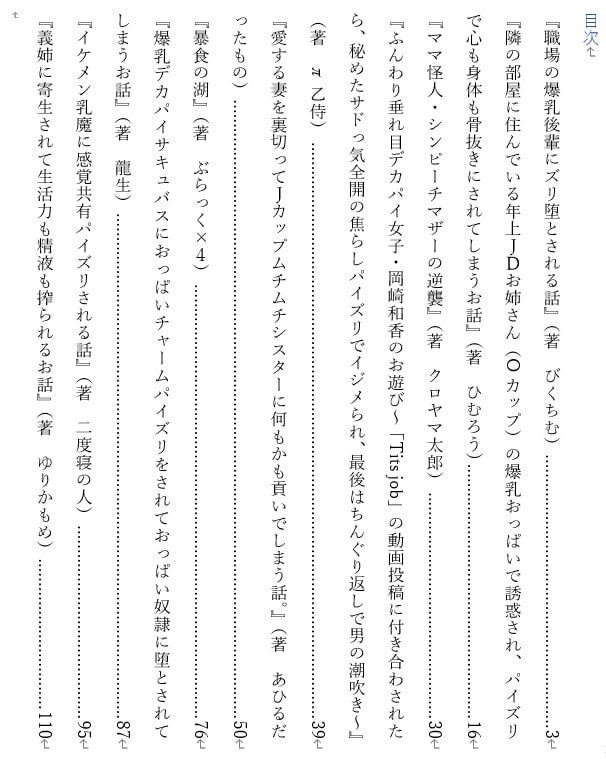 目次
『職場の爆乳後輩にズリ堕とされる話』（著　びくちむ）……………………………3
『隣の部屋に住んでいる年上ＪＤお姉さん（Ｏカップ）の爆乳おっぱいで誘惑され、パイズリ
で心も身体も骨抜きにされてしまうお話』（著　ひむろう）……………………………16
『ママ怪人・シンピーチマザーの逆襲』（著　クロヤマ太郎）……………………………30
『ふんわり垂れ目デカパイ女子・岡崎和香のお遊び～「Tits job」の動画投稿に付き合わされた
ら、秘めたサドっ気全開の焦らしパイズリでイジメられ、最後はちんぐり返しで男の潮吹き～』
（著　π乙侍）……………………………39
『愛する妻を裏切ってＪカップムチムチシスターに何もかも貢いでしまう話。』（著　あひるだ
ったもの）……………………………50
『暴食の湖』（著　ぶらっく×4）……………………………76
『爆乳デカパイサキュバスにおっぱいチャームパイズリをされておっぱい奴隷に堕とされて
しまうお話』（著　龍生）……………………………87
『イケメン乳魔に感覚共有パイズリされる話』（著　二度寝の人）……………………………95
『義姉に寄生されて生活力も精液も搾られるお話』（著　ゆりかもめ）……………………………110